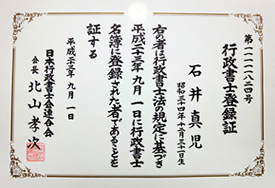 第一一一二八二四号
行政書士登録証
石井真児
昭和三十四年十二月二十一日生
右の者は行政書士法の規定に基づき
平成二十三年九月一日に行政書士
名簿に登録された者であることを
証する
平成二十三年九月一日
日本行政書士会連合会
会長 北山孝次